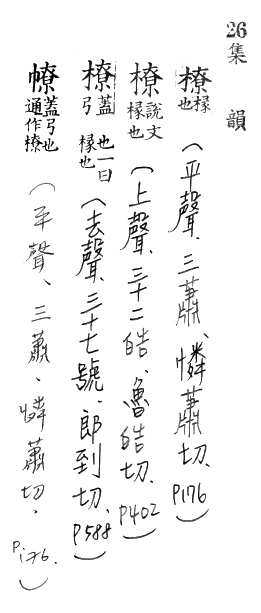 26集韻
橑椽也(平聲、三蕭、憐蕭切、P176)
橑說文椽也(上聲、三十二皓、魯皓切、P402)
橑蓋弓也一曰椽也(去聲、三十七號、郎到切、P588)
幧蓋弓也通作橑(平聲、三蕭、憐蕭切、P176.)